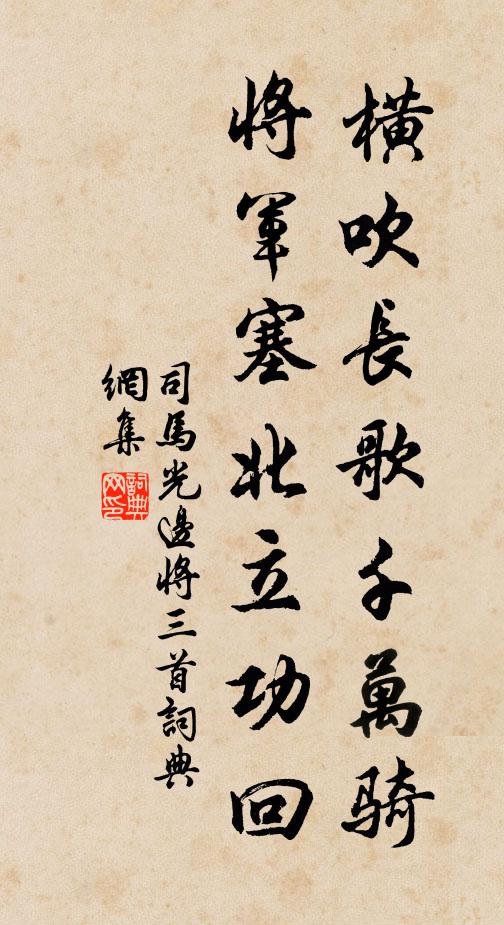 橫吹長歌千萬騎
將軍塞北立功回
司馬光邊將三首詞典
網集
詞典
网印